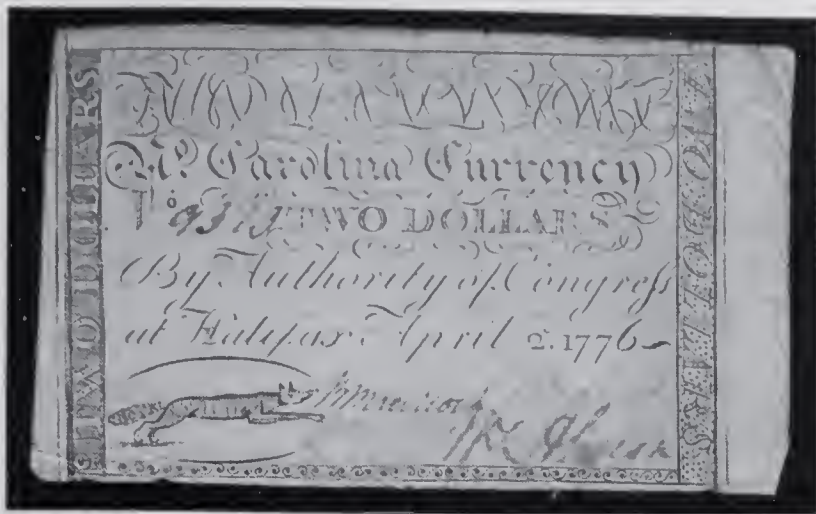 TWO DOLLARS
No. Carolina Currency
No
TWO DOLLARS
By Authority of Congress
at Halifax April 2. 1776
TWO DOLLARS